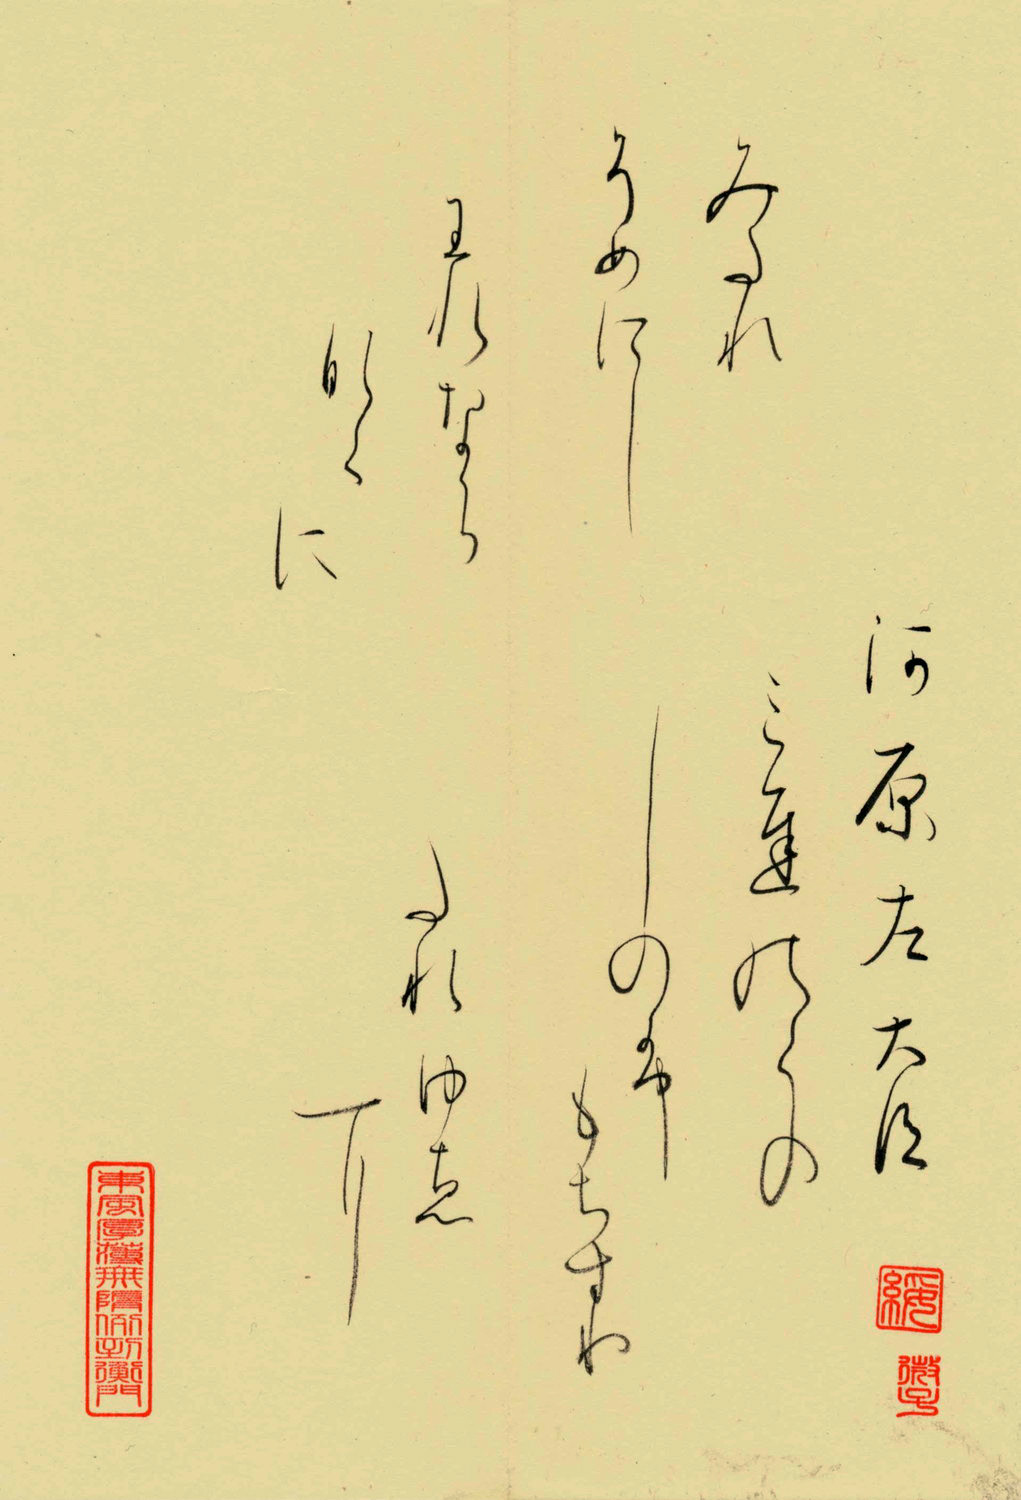 河原左大臣
みちのくの
しのふ
もちすり
たれゆゑ
に
みたれ
そめにし
われなら
なく
に